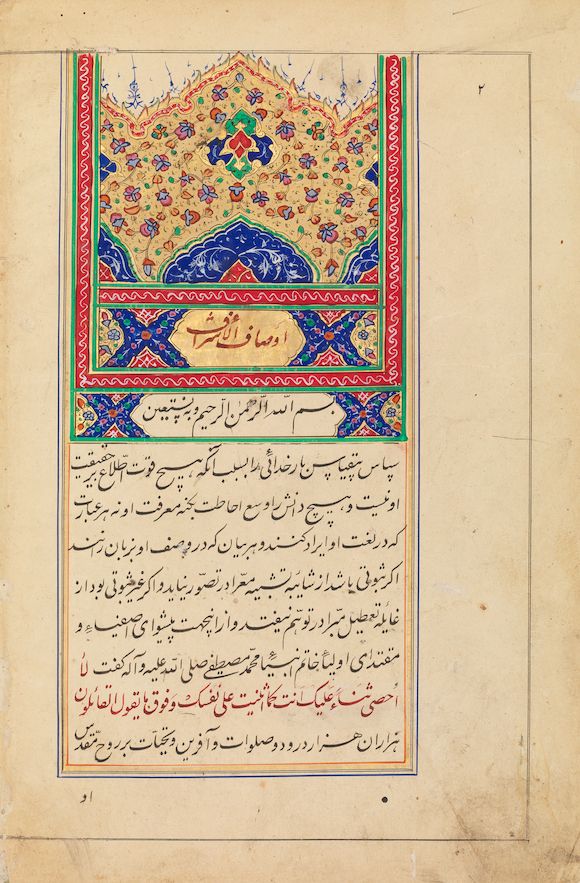 ۲
اوصاف الاشراف
بسم الله الرحمن الرحیم وبه نستعین
سپاس بیقیاس بار خدائی را بسبب آنکه هیچ قوت اطلاع بر حقیقت
او نیست و هیچ دانش را وسع احاطت بکنه معرفت او نه هر عبارت
که در نعت او ایراد کنند و هر بیان که در وصف او بر زبان رانند
اکر ثبوتی باشد از شایبه تشبیه معرا در تصور نیاید و اکر غیر ثبوتی بود از
غایله تعطیل مبرا در توهم نیفتد و از اینجهت پیشوای اصفیاء و
مقتدای اولیاء خاتم انبیا محمد مصطفی صلی الله علیه و آله کفت لا
احصی ثناء علیک انت کما اثنیت علی نفسک و فوق ما یقول القائلون
هزاران هزار درود و صلوات و آفرین و تحیات بر روح مقدس
او